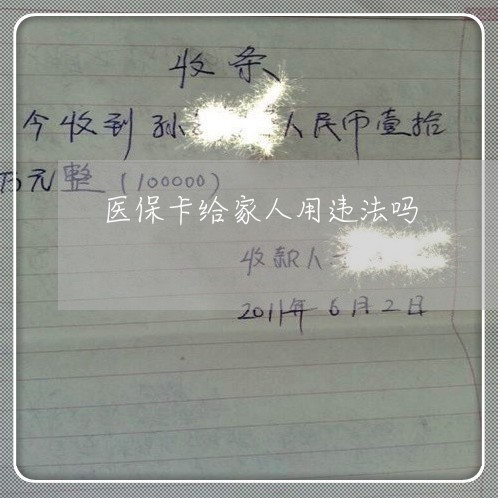 收条
今收到孙 人民币壹拾
万元整（100000）
医保卡给家人用违法吗
收款人
2011年6月2日